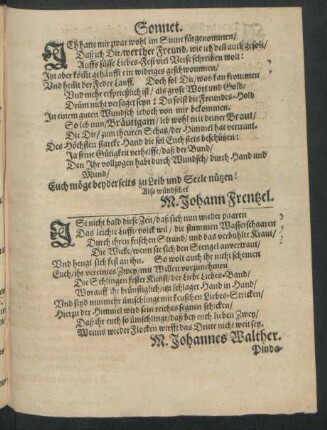 Sonnet.
ICh hatte mir zwar wohl im Sinne fürgenommen/
Daß ich Dir/ werther Freund/ wie ich deß auch gesolt/
Auffs süsse Liebes-Fest viel Verse schreiben wolt:
Itzt aber kömt gehäufft ein widriges geschwommen/
Und heißt der Feder Lauff. Doch sol Dir/ was kan frommen
Und mehr ersprießlich ist/ als grosse Wort und Gold/
Drüm nicht versaget seyn: Du solst die Freundes-Hold
In einem guten Wundsch iedoch von mir bekommen.
So leb nun/ Bräutigam/ leb wohl mit deiner Braut/
Die Dir/ zum theuren Schatz/ der Himmel hat vertraut.
Des Höchsten starcke Hand die sol Euch stets beschützen:
Ja seine Gütigkeit verheiß/ daß der Bund/
Den Ihr vollzogen habt durch Wundsch/ durch Hand und
Mund/
Euch möge beyderseits zu Leib und Seele nützen!
Also wündschet
M. Johann Frentzel.
ISt nicht bald diese Zeit/ daß sich nun wieder paaren
Das leichte Lufft-volck wil/ die stummen Wasserschaaren
Durch ihren frischen Strand/ und das verbuhlte Kraut/
Die Wicke/ wenn sie sich den Stengel anvertraut/
Und hengt sich fest an ihn. So wolt auch ihr nicht schemen
Euch/ ihr vereintes Zwey/ mit Willen vorzunehmen
Die Schlingen fester Kunst/ der Liebe Liebes-Band/
Worauff ihr brünstiglich itzt schlaget Hand in Hand/
Und seyd nunmehr ümschlingt mit keuschen Liebes-Stricken/
Hierzu der Himmel wird sein reiches segnen schicken/
Daß ihr euch so ümschlingt/ daß bey euch lieben Zwey/
Wenns wieder Flocken wirfft das Dritte nicht weit sey.
M. Johannes Walther.
Pinda-